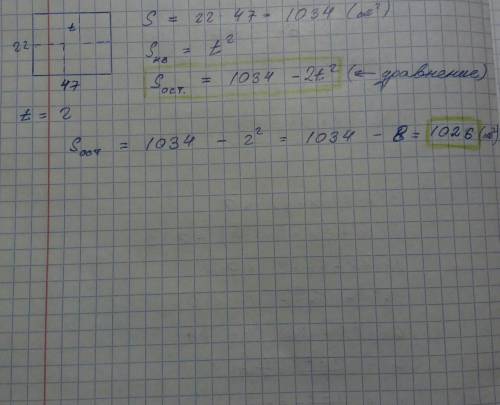 t
22
47
S = 22 47 = 1034 (см²)
Sкв = t²
Sост. = 1034 - 2t² (← уравнение)
t = 2
Sост = 1034 - 2² = 1034 - 8 = 1026 (см²)